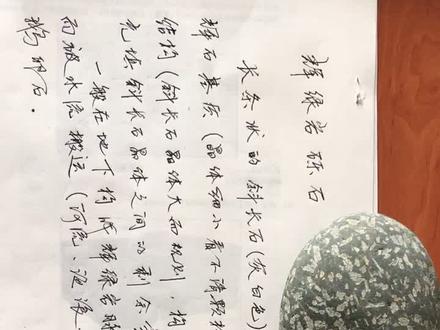 辉绿岩砾石
长条状的斜长石(灰白色)
辉石基质(晶体细小看不清颗
结构(斜长石晶体大而规则,构
充填斜长石晶体之间的剩余
一般在地下构成辉绿岩脉
而被水流搬运(河流、海浪
鹅卵石.